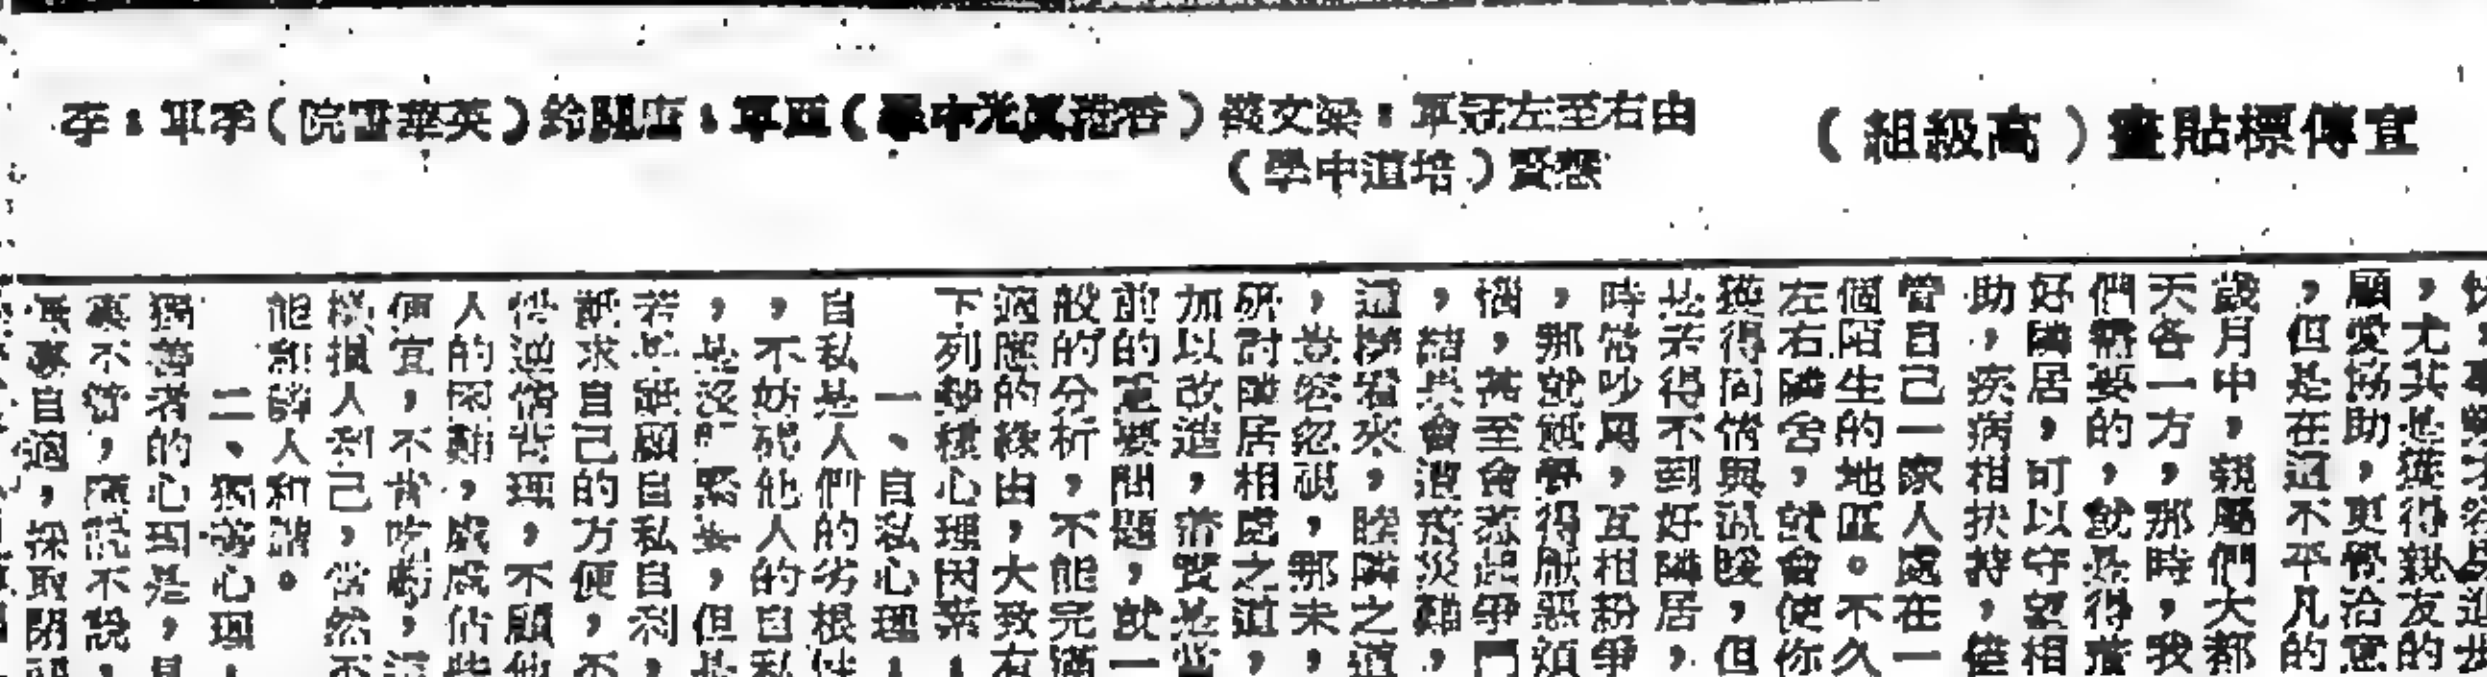 宣傳標貼畫（高級組）
由右至左冠軍：梁文
（培道中學）
亞軍（香港真光中學）
季軍（英華書院）
，尤其是獲得親友的
顧愛協助，更覺洽意
，但是在這不平凡的
歲月中，親屬們大都
天各一方，那時，我
們需要的，就是得
好隣居，可以守望相
助，疾病相扶持，
管自己一家人處在一
個陌生的地區。不久
左右隣舍，就會使你
獲得同情與溫暖，但
是若得不到好隣居，
時常吵鬧，互相紛爭
，那就祇覺得厭惡煩
惱，甚至會惹起爭鬥
，結果會遭災難，
這樣看來，睦隣之道
，豈容忽視，那末，
研討隣居相處之道，
加以改造，
前的重要問題，就一
般的分析，不能完滿
適應的緣由，大致有
下列幾種心理因素：
一、自私心理：
自私是人們的劣根性
，不妨碍他人的自私
，是沒
若是祇顧自私自利，
祇求自己的方便，不
情背理，不顧他
人的困難，處處佔些
便宜，不肯吃虧，這
樣損人利己，當然不
能和隣人和諧。
二、獨善心理：
獨善者的心理是，
不管，不說，
自適，採取閉